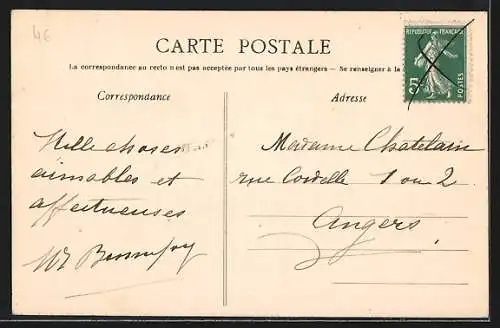 46
CARTE POSTALE
RÉPUBLIQUE FRANÇAISE
5c
POSTES
La correspondance au recto n'est pas acceptée par tous les pays étrangers - Se renseigner à la
Correspondance
Adresse
Mille choses
aimables et
affectueuses
Madame Chatelain
rue Cordelle 1 ou 2
Angers